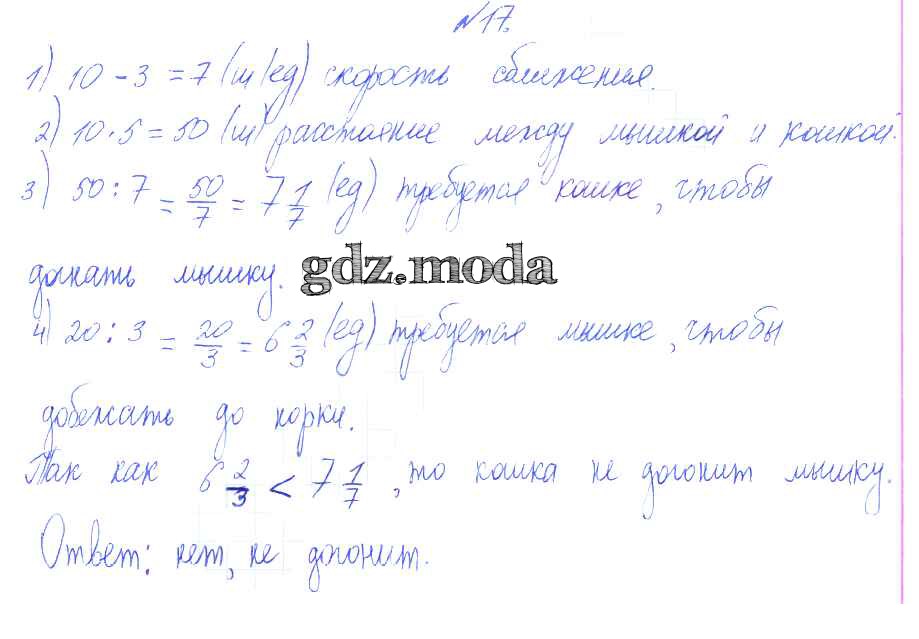 №17.
1) 10 - 3 = 7 (ш/ед) скорость сближения.
2) 10·5 = 50 (ш) расстояние между мышкой и кошкой.
3) 50 : 7 = 50/7 = 7 1/7 (ед) требуется кошке, чтобы
догнать мышку.
gdz.moda
4) 20 : 3 = 20/3 = 6 2/3 (ед) требуется мышке, чтобы
добежать до норки.
Так как 6 2/3 < 7 1/7, то кошка не догонит мышку.
Ответ: нет, не догонит.